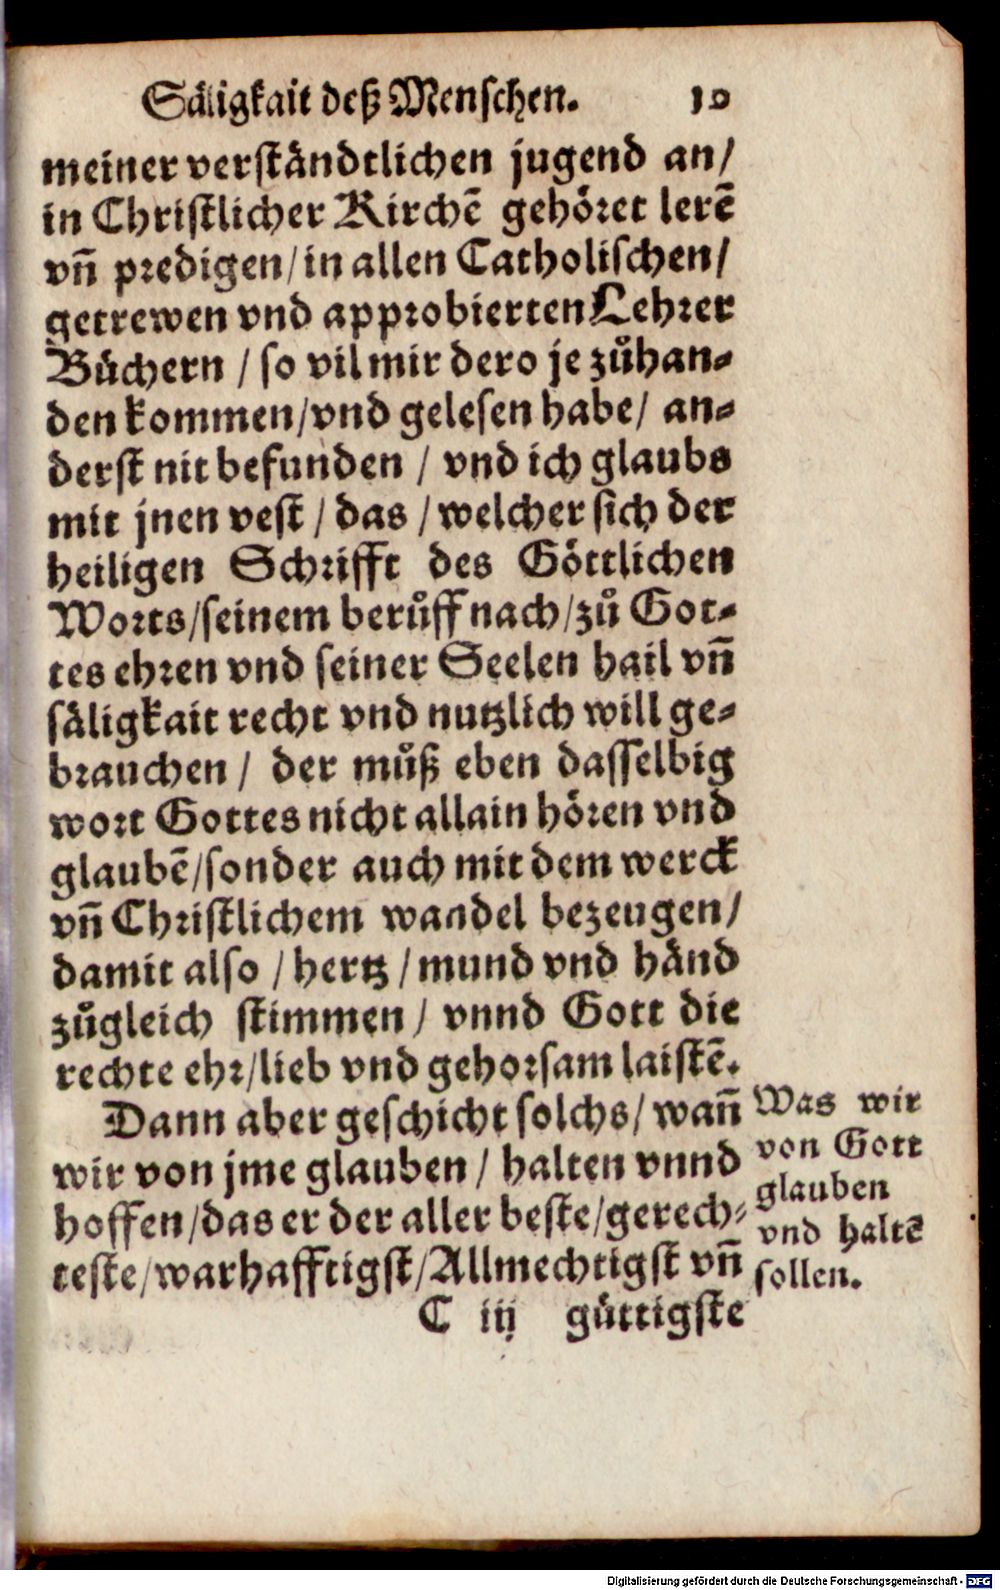 Säligkait deß Menschen. 10
meiner verständtlichen jugend an/
in Christlicher Kirchẽ gehöret lerẽ
vñ predigen/in allen Catholischen/
getrewen vnd approbierten Lehrer
Büchern / so vil mir dero je zůhan⸗
den kommen/vnd gelesen habe/ an⸗
derst nit befunden / vnd ich glaubs
mit jnen vest / das / welcher sich der
heiligen Schrifft des Göttlichen
Worts/seinem berůff nach/zů Got⸗
tes ehren vnd seiner Seelen hail vñ
säligkait recht vnd nutzlich will ge⸗
brauchen / der můß eben dasselbig
wort Gottes nicht allain hören vnd
glaubẽ/sonder auch mit dem werck
vñ Christlichem wandel bezeugen/
damit also / hertz / mund vnd händ
zůgleich stimmen / vnnd Gott die
rechte ehr/lieb vnd gehorsam laistẽ.
Dann aber geschicht solchs/ wañ
wir von jme glauben / halten vnnd
hoffen/das er der aller beste/gerech⸗
teste/warhafftigst/Allmechtigst vñ
Was wir
von Gott
glauben
vnd haltẽ
sollen.
C iij güttigste
Digitalisierung gefördert durch die Deutsche Forschungsgemeinschaft - DFG